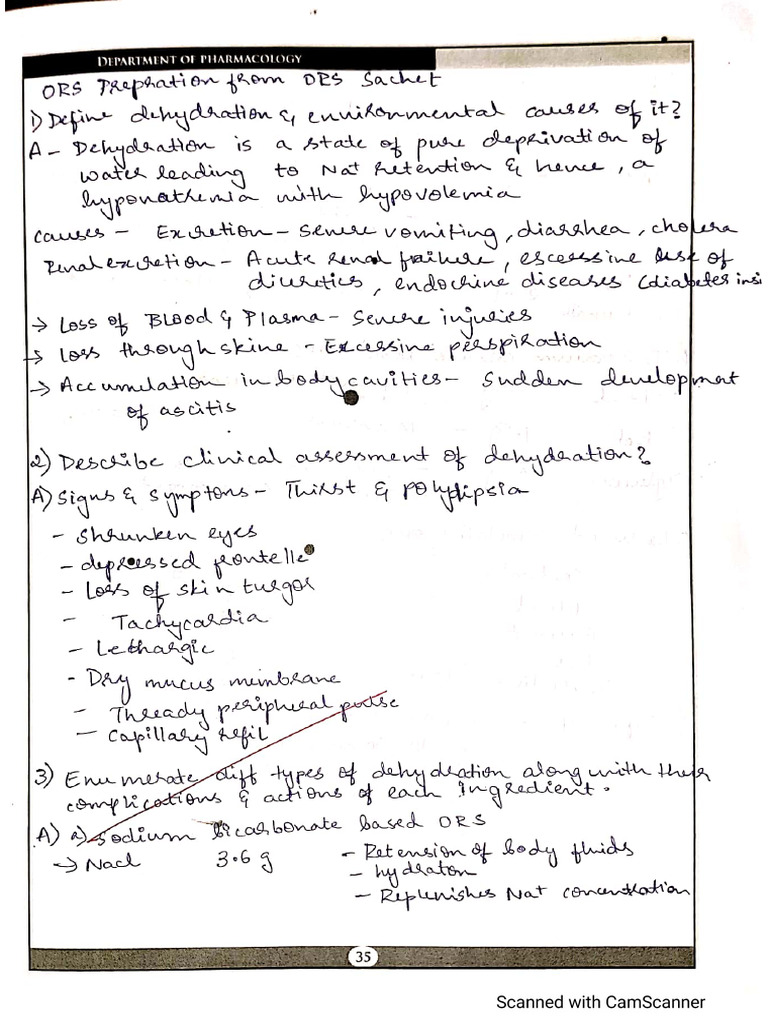 DEPARTMENT OF PHARMACOLOGY
ORS Prepration from ORS Sachet
1) Define dehydration & environmental causes of it?
A - Dehydration is a state of pure deprivation of
water leading to Na+ Retention & hence, a
hyponathemia with hypovolemia
causes - Excretion - Severe vomiting, diarrhea, cholera
Renal excretion - Acute renal failure, escessine use of
diuretics, endocrine diseases (diabetes insi
→ Loss of Blood & Plasma - Severe injuries
→ loss through skine - Excessine perspiration
→ Accumulation in body cavities - Sudden development
of ascitis
2) Describe clinical assessment of dehydration?
A) Signs & symptons - Thirst & polydipsia
- Shrunken eyes
- depressed frontelle
- Loss of skin turgor
- Tachycardia
- Lethargic
- Dry mucus membrane
- Thready peripheral pulse
- Capillary refil
3) Enumerate diff types of dehydration along with their
complications & actions of each ingredient.
A) a) Sodium bicarbonate based ORS
→ Nacl 3.6 g - Retension of body fluids
- hydraton
- Replenishes Na+ concentration
35
Scanned with CamScanner